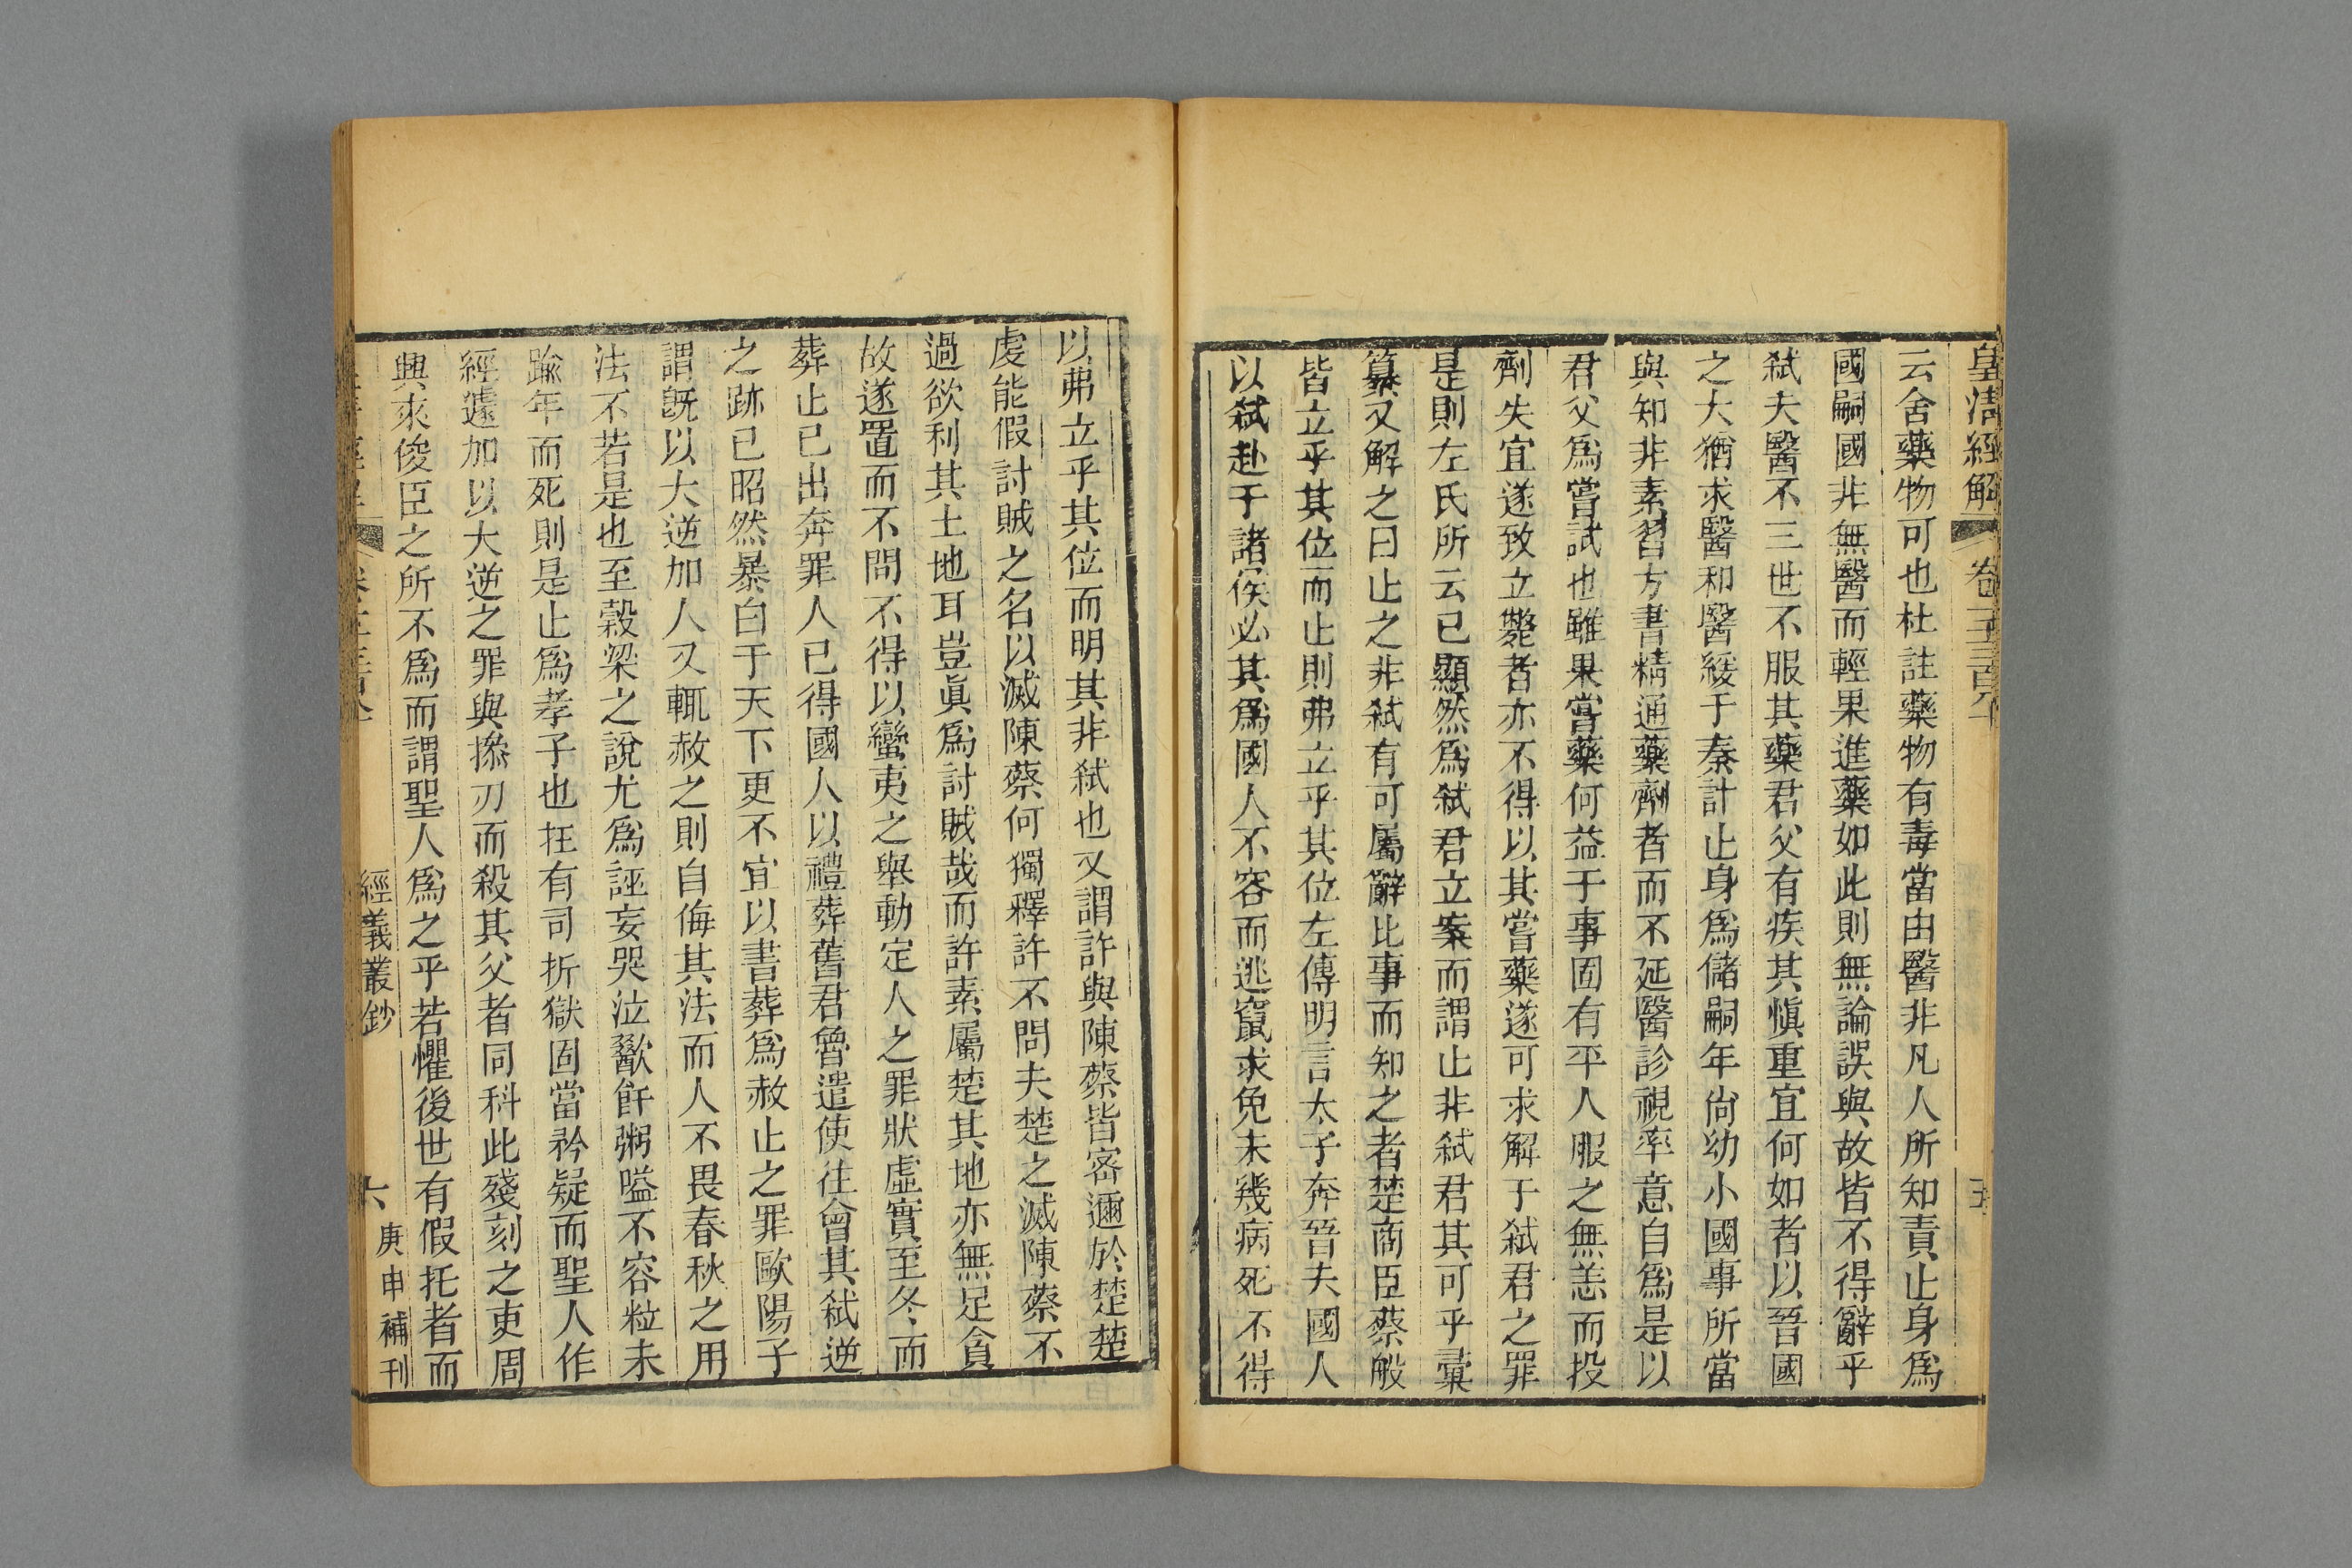 皇清經解 卷一千三百八十 五
云舍藥物可也杜註藥物有毒當由醫非凡人所知責止身爲
國嗣國非無醫而輕果進藥如此則無論誤與故皆不得辭乎
弑夫醫不三世不服其藥君父有疾其愼重宜何如者以晉國
之大猶求醫和醫緩于秦計止身爲儲嗣年尙幼小國事所當
與知非素習方書精通藥劑者而不延醫診視率意自爲是以
君父爲嘗試也雖果嘗藥何益于事固有平人服之無恙而投
劑失宜遂致立斃者亦不得以其嘗藥遂可求解于弑君之罪
是則左氏所云已顯然爲弑君立案而謂止非弑君其可乎彙
纂又解之曰止之非弑有可屬辭比事而知之者楚商臣蔡般
皆立乎其位而止則弗立乎其位左傳明言太子奔晉夫國人
以弑赴于諸侯必其爲國人不容而逃竄求免未幾病死不得
以弗立乎其位而明其非弑也又謂許與陳蔡皆密邇於楚楚
虔能假討賊之名以滅陳蔡何獨釋許不問夫楚之滅陳蔡不
過欲利其土地耳豈眞爲討賊哉而許素屬楚其地亦無足貪
故遂置而不問不得以蠻夷之舉動定人之罪狀虛實至冬而
葬止已出奔罪人已得國人以禮葬舊君魯遣使往會其弑逆
之跡已昭然暴白于天下更不宜以書葬爲赦止之罪歐陽子
謂旣以大逆加人又輒赦之則自侮其法而人不畏春秋之用
法不若是也至穀梁之說尤爲誣妄哭泣歠飦粥嗌不容粒未
踰年而死則是止爲孝子也抂有司折獄固當矜疑而聖人作
經遽加以大逆之罪與摻刃而殺其父者同科此殘刻之吏周
興來俊臣之所不爲而謂聖人爲之乎若懼後世有假托者而
經義叢鈔 六 庚申補刊